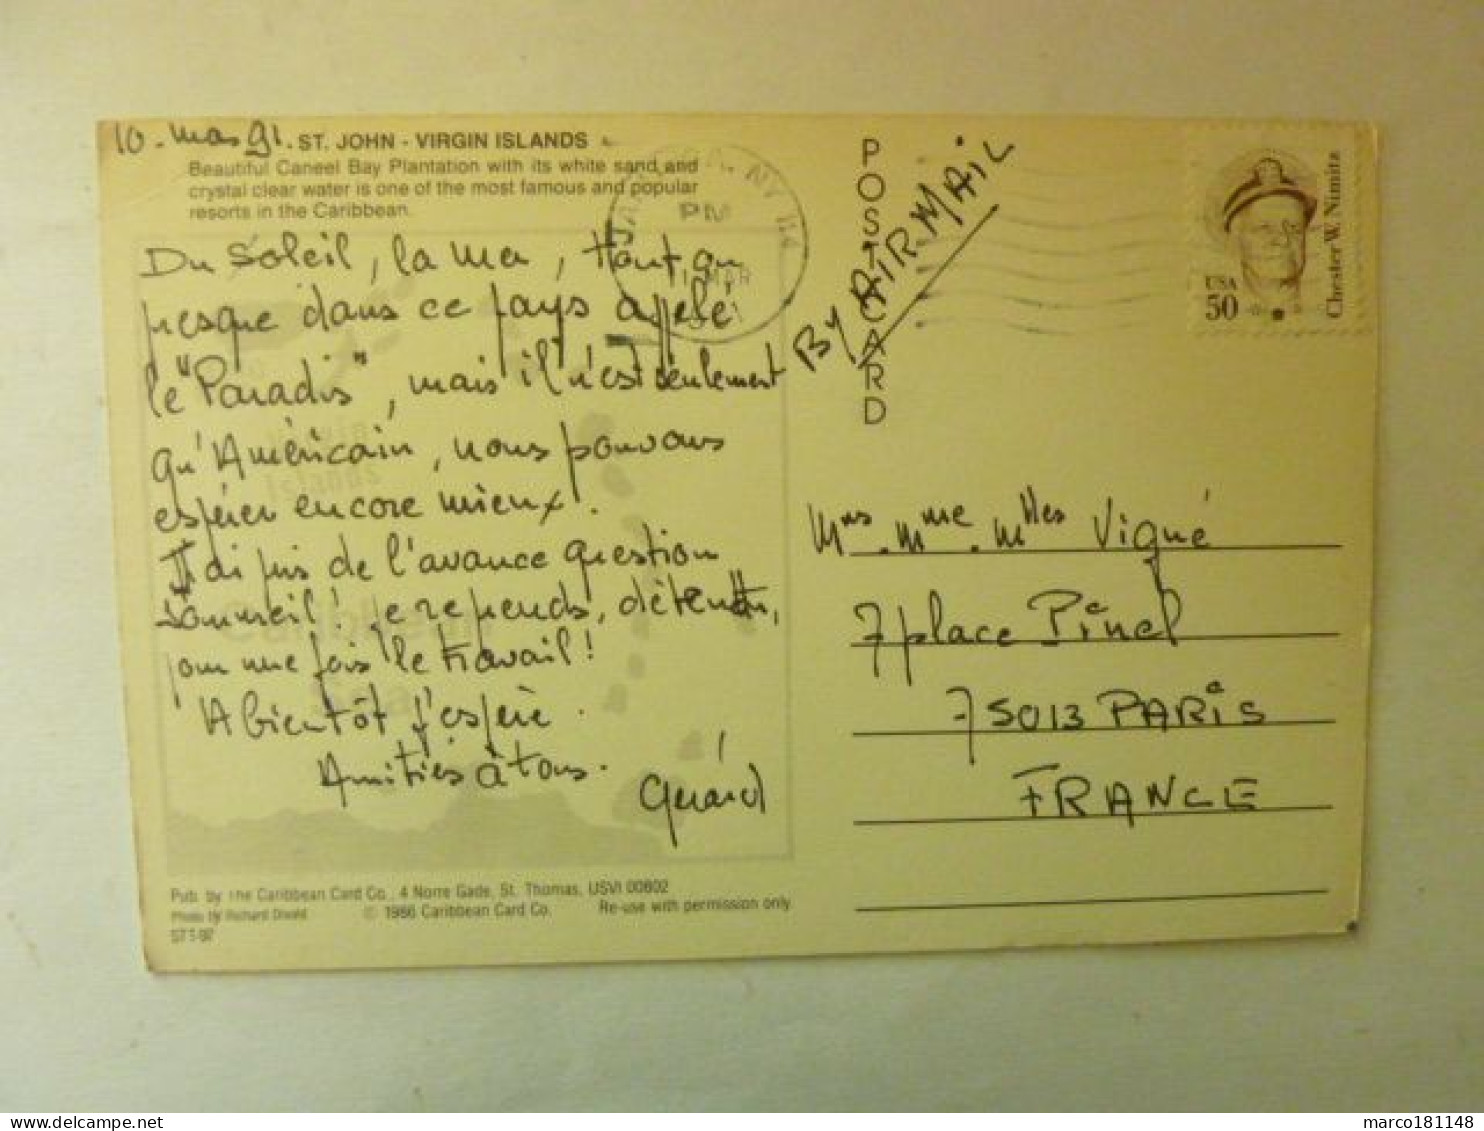 10. mars 91. ST. JOHN - VIRGIN ISLANDS
Beautiful Caneel Bay Plantation with its white sand and
crystal clear water is one of the most famous and popular
resorts in the Caribbean.
Du Soleil, la mer, tout ou
presque dans ce pays appelé
le "Paradis", mais il n'est seulement
qu'Américain, nous pouvons
espérer encore mieux.
J'ai pris de l'avance question
sommeil! Je reprends, détendu,
pour une fois le travail!
A bientôt j'espère.
Amitiés à tous.
Gérard
Virgin
Islands
Caribbean
Sea
Pub. by The Caribbean Card Co., 4 Norre Gade, St. Thomas, USVI 00802
Photo by Richard © 1986 Caribbean Card Co. Re-use with permission only
POSTCARD
By AIR MAIL
NY 114
PM
MAR
USA
50
Chester W. Nimitz
Mrs. Mme. Mlles Vigué
7 place Pinel
75013 PARiS
FRANCE
marco181148